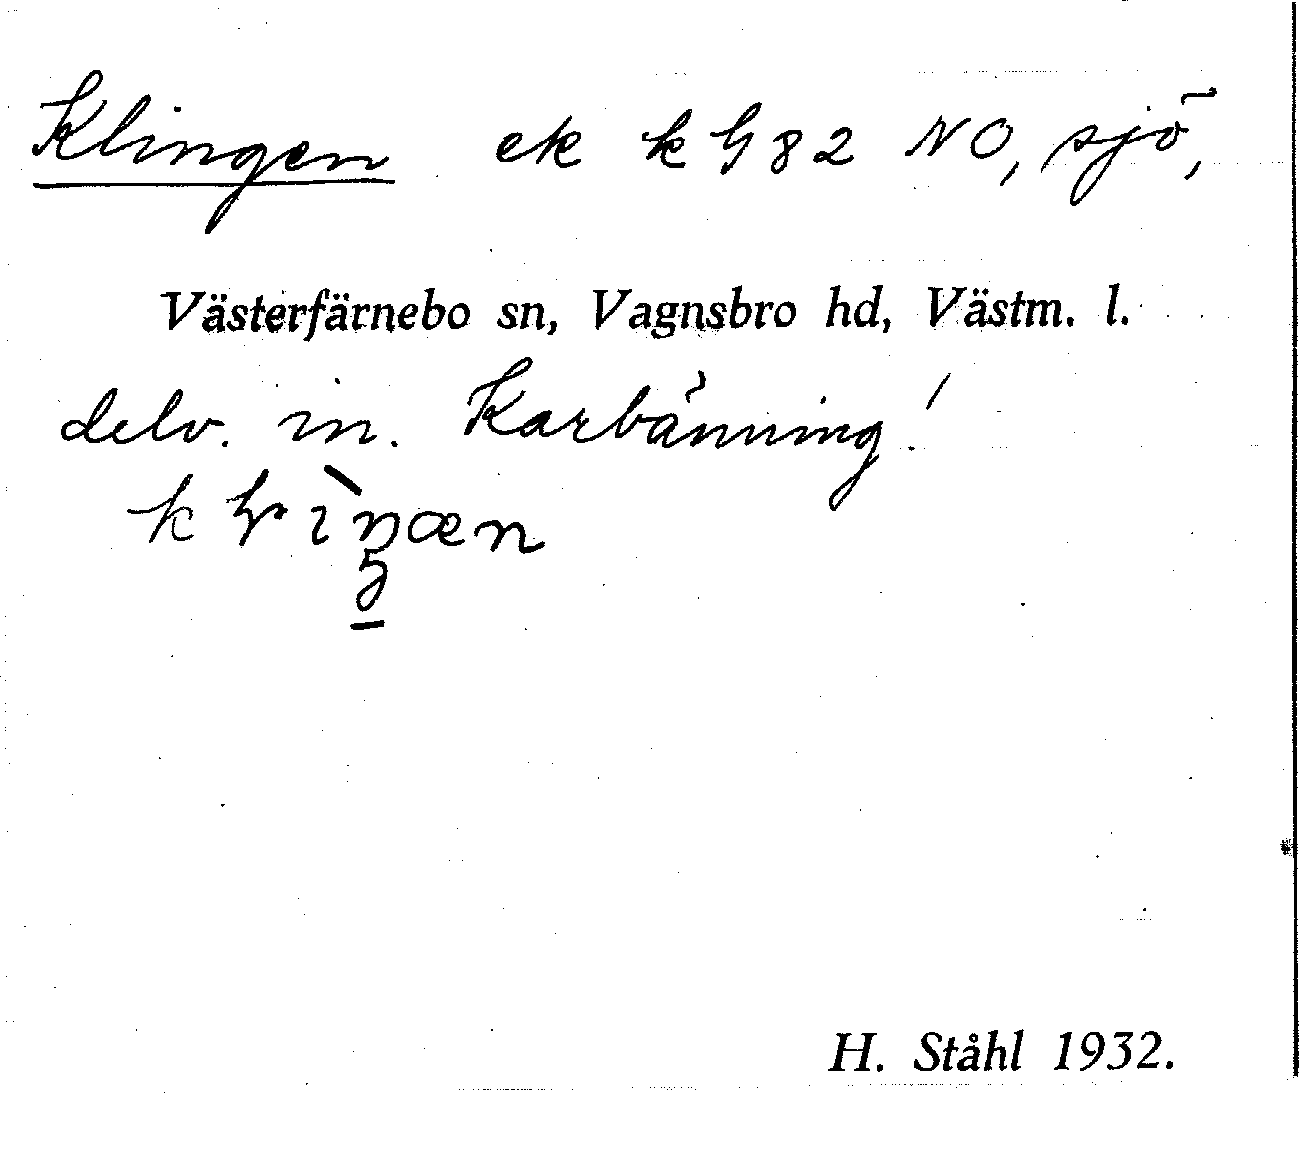 Klingen ek k bl 82 NO, sjö,
Västerfärnebo sn, Vagnsbro hd, Västm. l.
delv. in. Karbänning!
H. Ståhl 1932.